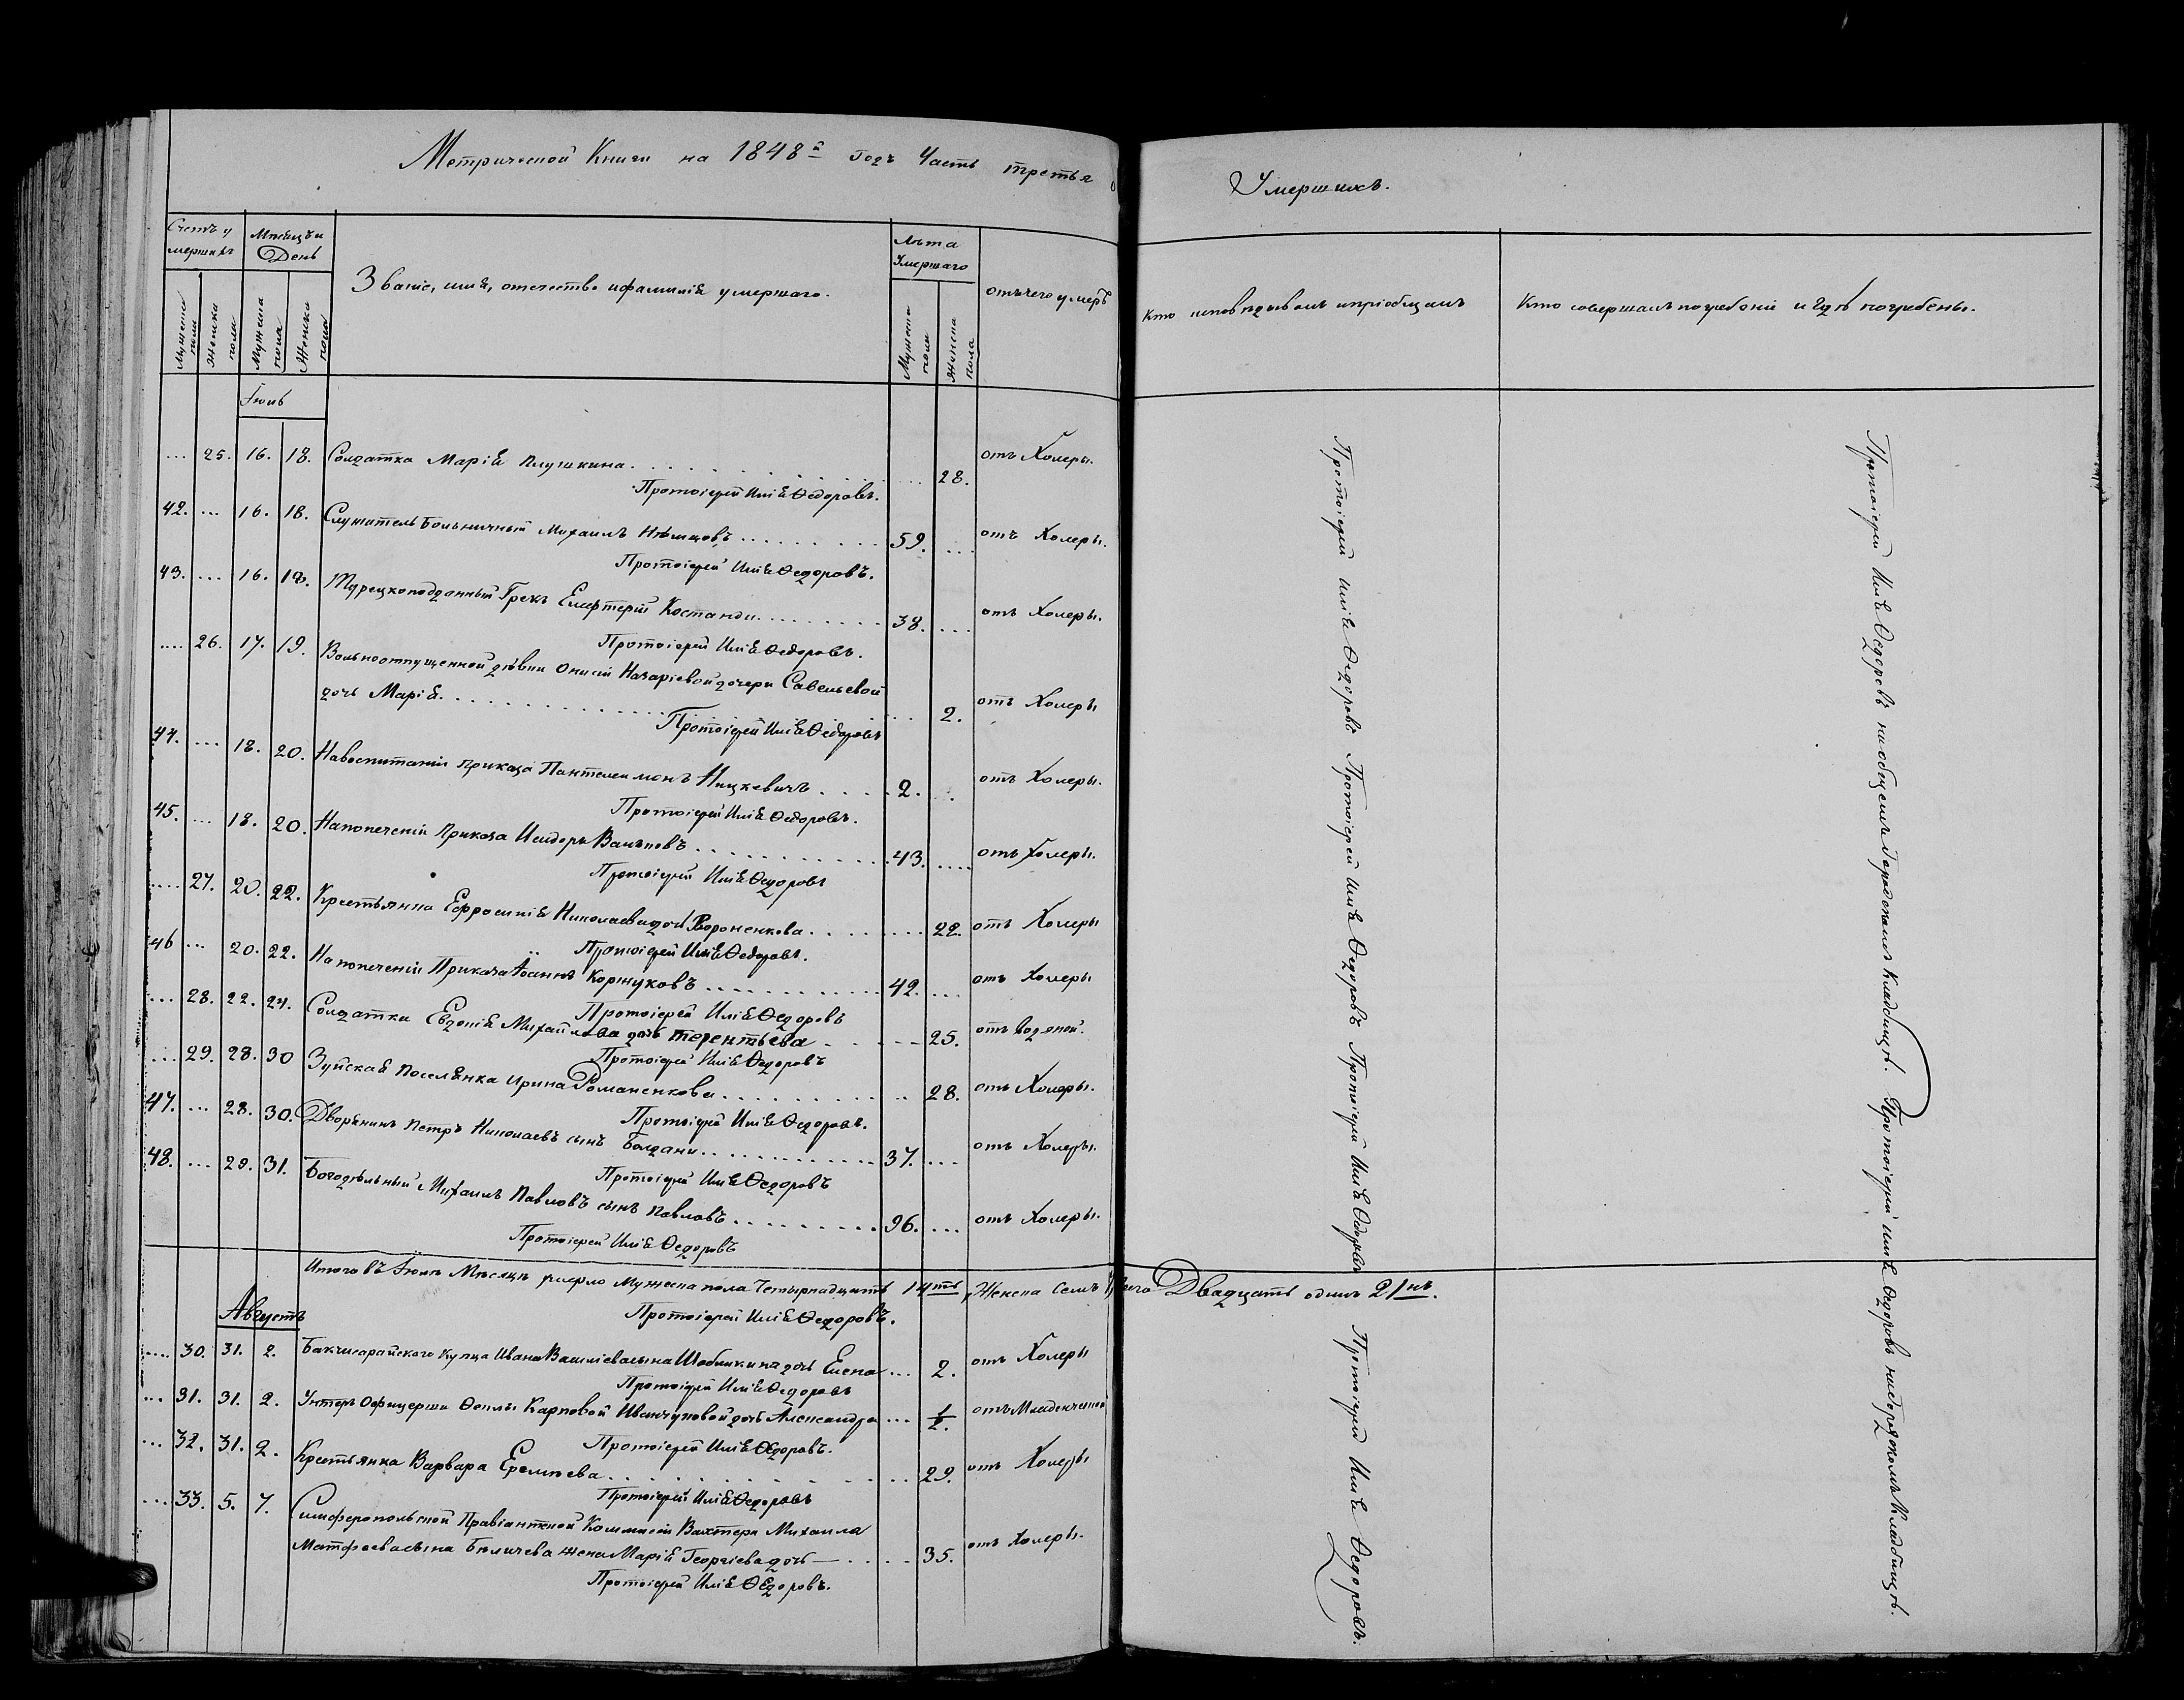 Метрической Книги на 1848й годъ Часть третья о
Умершихъ.
Счетъ у
мершихъ
Мѣсяцъ и
День
Званіе, имя, отечество и фамилія умершаго.
Лѣта
Умершаго
отъ чего умеръ
Кто исповѣдывалъ и пріобщалъ
Кто совершалъ погребеніе и гдѣ погребены.
Мужеска пола
Женска пола
Мужеска пола
Женска пола
Мужеска пола
Женска пола
Іюль
... 25. 16. 18. Солдатка Марія Плушкина. ... 28. отъ Холеры.
Протоіерей Илія Ѳедоровъ.
42. ... 16. 18. Служитель Больничный Михаилъ Нѣмцовъ 59. ... отъ Холеры.
Протоіерей Илія Ѳедоровъ.
43. ... 16. 18. Турецкоподданный Грекъ Елефтерій Костанди. 38. ... отъ Холеры.
Протоіерей Илія Ѳедоровъ.
.... 26. 17. 19. Вольноотпущенной дѣвки Онисіи Назаріевой дочери Савельевой
дочь Марія. ... 2. отъ Холеры
Протоіерей Илія Ѳедоровъ
44. ... 18. 20. На воспитаніи приказа Пантелеимонъ Ницкевичъ 2. ... отъ Холеры.
Протоіерей Илія Ѳедоровъ.
45. ... 18. 20. На попеченіи Приказа Исидоръ 43. .... отъ Холеры.
Протоіерей Илія Ѳедоровъ
.... 27. 20. 22. Крестьянка Ефросинія Николаева дочь Вороненкова. ... 22. отъ Холеры
Протоіерей Илія Ѳедоровъ.
46 ... 20. 22. На попеченіи Приказа Іоаннъ Коржуковъ 42. ... отъ Холеры
Протоіерей Илія Ѳедоровъ
... 28. 22. 24. Солдатка Евдокія Михайлова дочь Терентьева 25. отъ Водяной.
Протоіерей Илія Ѳедоровъ
... 29. 28. 30 Зуйская Поселянка Ирина Романенкова. .. 28. отъ Холеры.
Протоіерей Илія Ѳедоровъ.
47. ... 28. 30. Дворянинъ Петръ Николаевъ сынъ Болдани. 37. ... отъ Холеры.
Протоіерей Илія Ѳедоровъ
48. ... 29. 31. Богодѣльный Михаилъ Павловъ сынъ Павловъ 96. ... отъ Холеры.
Протоіерей Илія Ѳедоровъ
Итого въ Іюлѣ Мѣсяцѣ умерло Мужеска пола Четырнадцать 14ть, Женска Семь Всего Двадцать одинъ 21нъ.
Протоіерей Илія Ѳедоровъ.
Августъ
.... 30. 31. 2. Бакчисарайскаго Купца Ивана Васильева сына Шабликина дочь Елена ... 2. отъ Холеры
Протоіерей Илія Ѳедоровъ
... 31. 31. 2. Унтеръ Офицерши Ѳеклы Карповой Иванчуковой дочь Александра ... 1/2. отъ Младенческой
Протоіерей Илія Ѳедоровъ.
... 32. 31. 2. Крестьянка Варвара Еремѣева. .. 29. отъ Холеры
Протоіерей Илія Ѳедоровъ
... 33. 5. 7. Симферопольской Правіантской Коммисіи Вахтера Михаила
Матфеева сына Бѣличева жена Марія Георгіева дочь 35. отъ Холеры.
Протоіерей Илія Ѳедоровъ.
Протоіерей Илія Ѳедоровъ Протоіерей Илія Ѳедоровъ Протоіерей Илія Ѳедоровъ
Протоіерей Илія Ѳедоровъ.
Протоіерей Илія Ѳедоровъ на общемъ Городскомъ Кладбищѣ. Протоіерей Илія Ѳедоровъ на городскомъ Кладбищѣ.